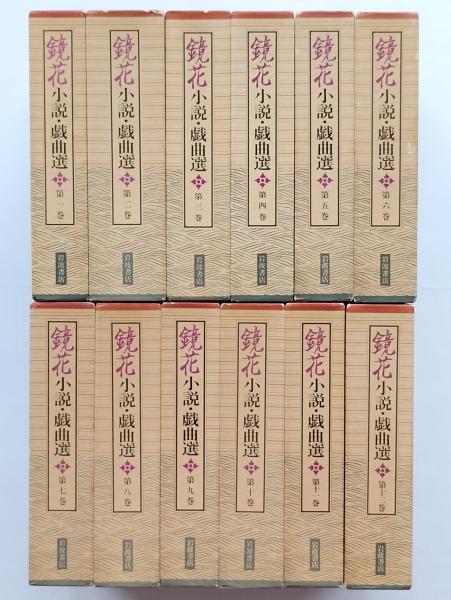 鏡花小説・戯曲選 第一巻
岩波書店
鏡花小説・戯曲選 第二巻
岩波書店
鏡花小説・戯曲選 第三巻
岩波書店
鏡花小説・戯曲選 第四巻
岩波書店
鏡花小説・戯曲選 第五巻
岩波書店
鏡花小説・戯曲選 第六巻
岩波書店
鏡花小説・戯曲選 第七巻
岩波書店
鏡花小説・戯曲選 第八巻
岩波書店
鏡花小説・戯曲選 第九巻
岩波書店
鏡花小説・戯曲選 第十巻
岩波書店
鏡花小説・戯曲選 第十一巻
岩波書店
鏡花小説・戯曲選 第十二巻
岩波書店